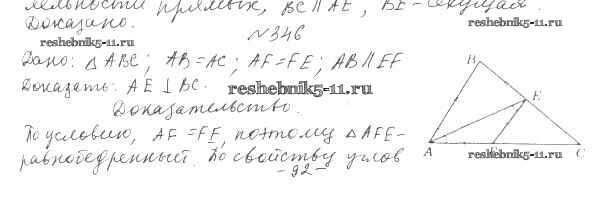 лельности прямых, BC ∥ AE, BE - секущая.
Доказано.
reshebnik5-11.ru
№346
reshebnik5-11.ru
Дано: △ABC; AB=AC; AF=FE; AB ∥ EF
Доказать: AE ⊥ BC.
reshebnik5-11.ru
Доказательство.
По условию, AF=FE, поэтому △AFE-
равнобедренный. По свойству углов
B
E
A
F
C
reshebnik5-11.ru
-92-